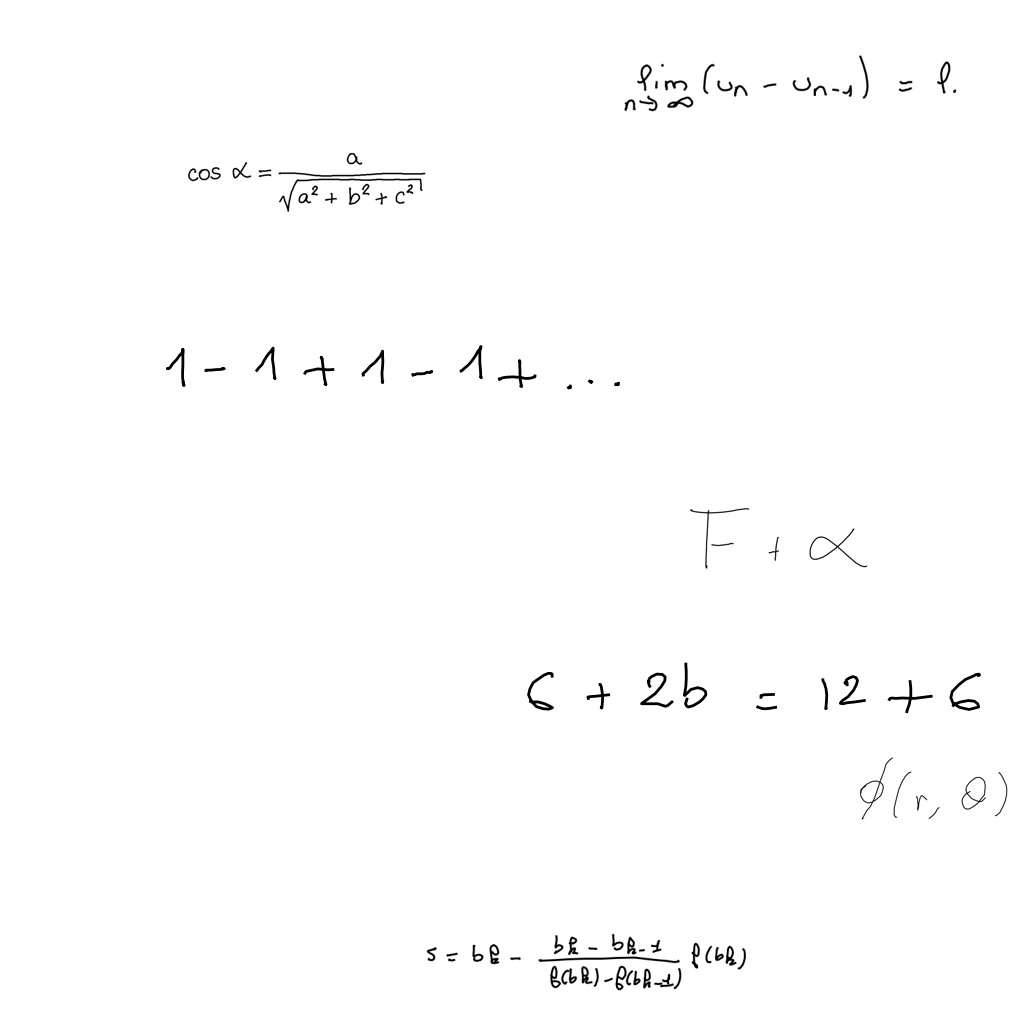 \lim_{n \to \infty} (u_n - u_{n-1}) = l.
\cos \alpha = \frac{a}{\sqrt{a^2 + b^2 + c^2}}
1 - 1 + 1 - 1 + ...
F + \alpha
6 + 2b = 12 + 6
\phi(r, \theta)
s = b_k - \frac{b_k - b_{k-1}}{f(b_k) - f(b_{k-1})} f(b_k)